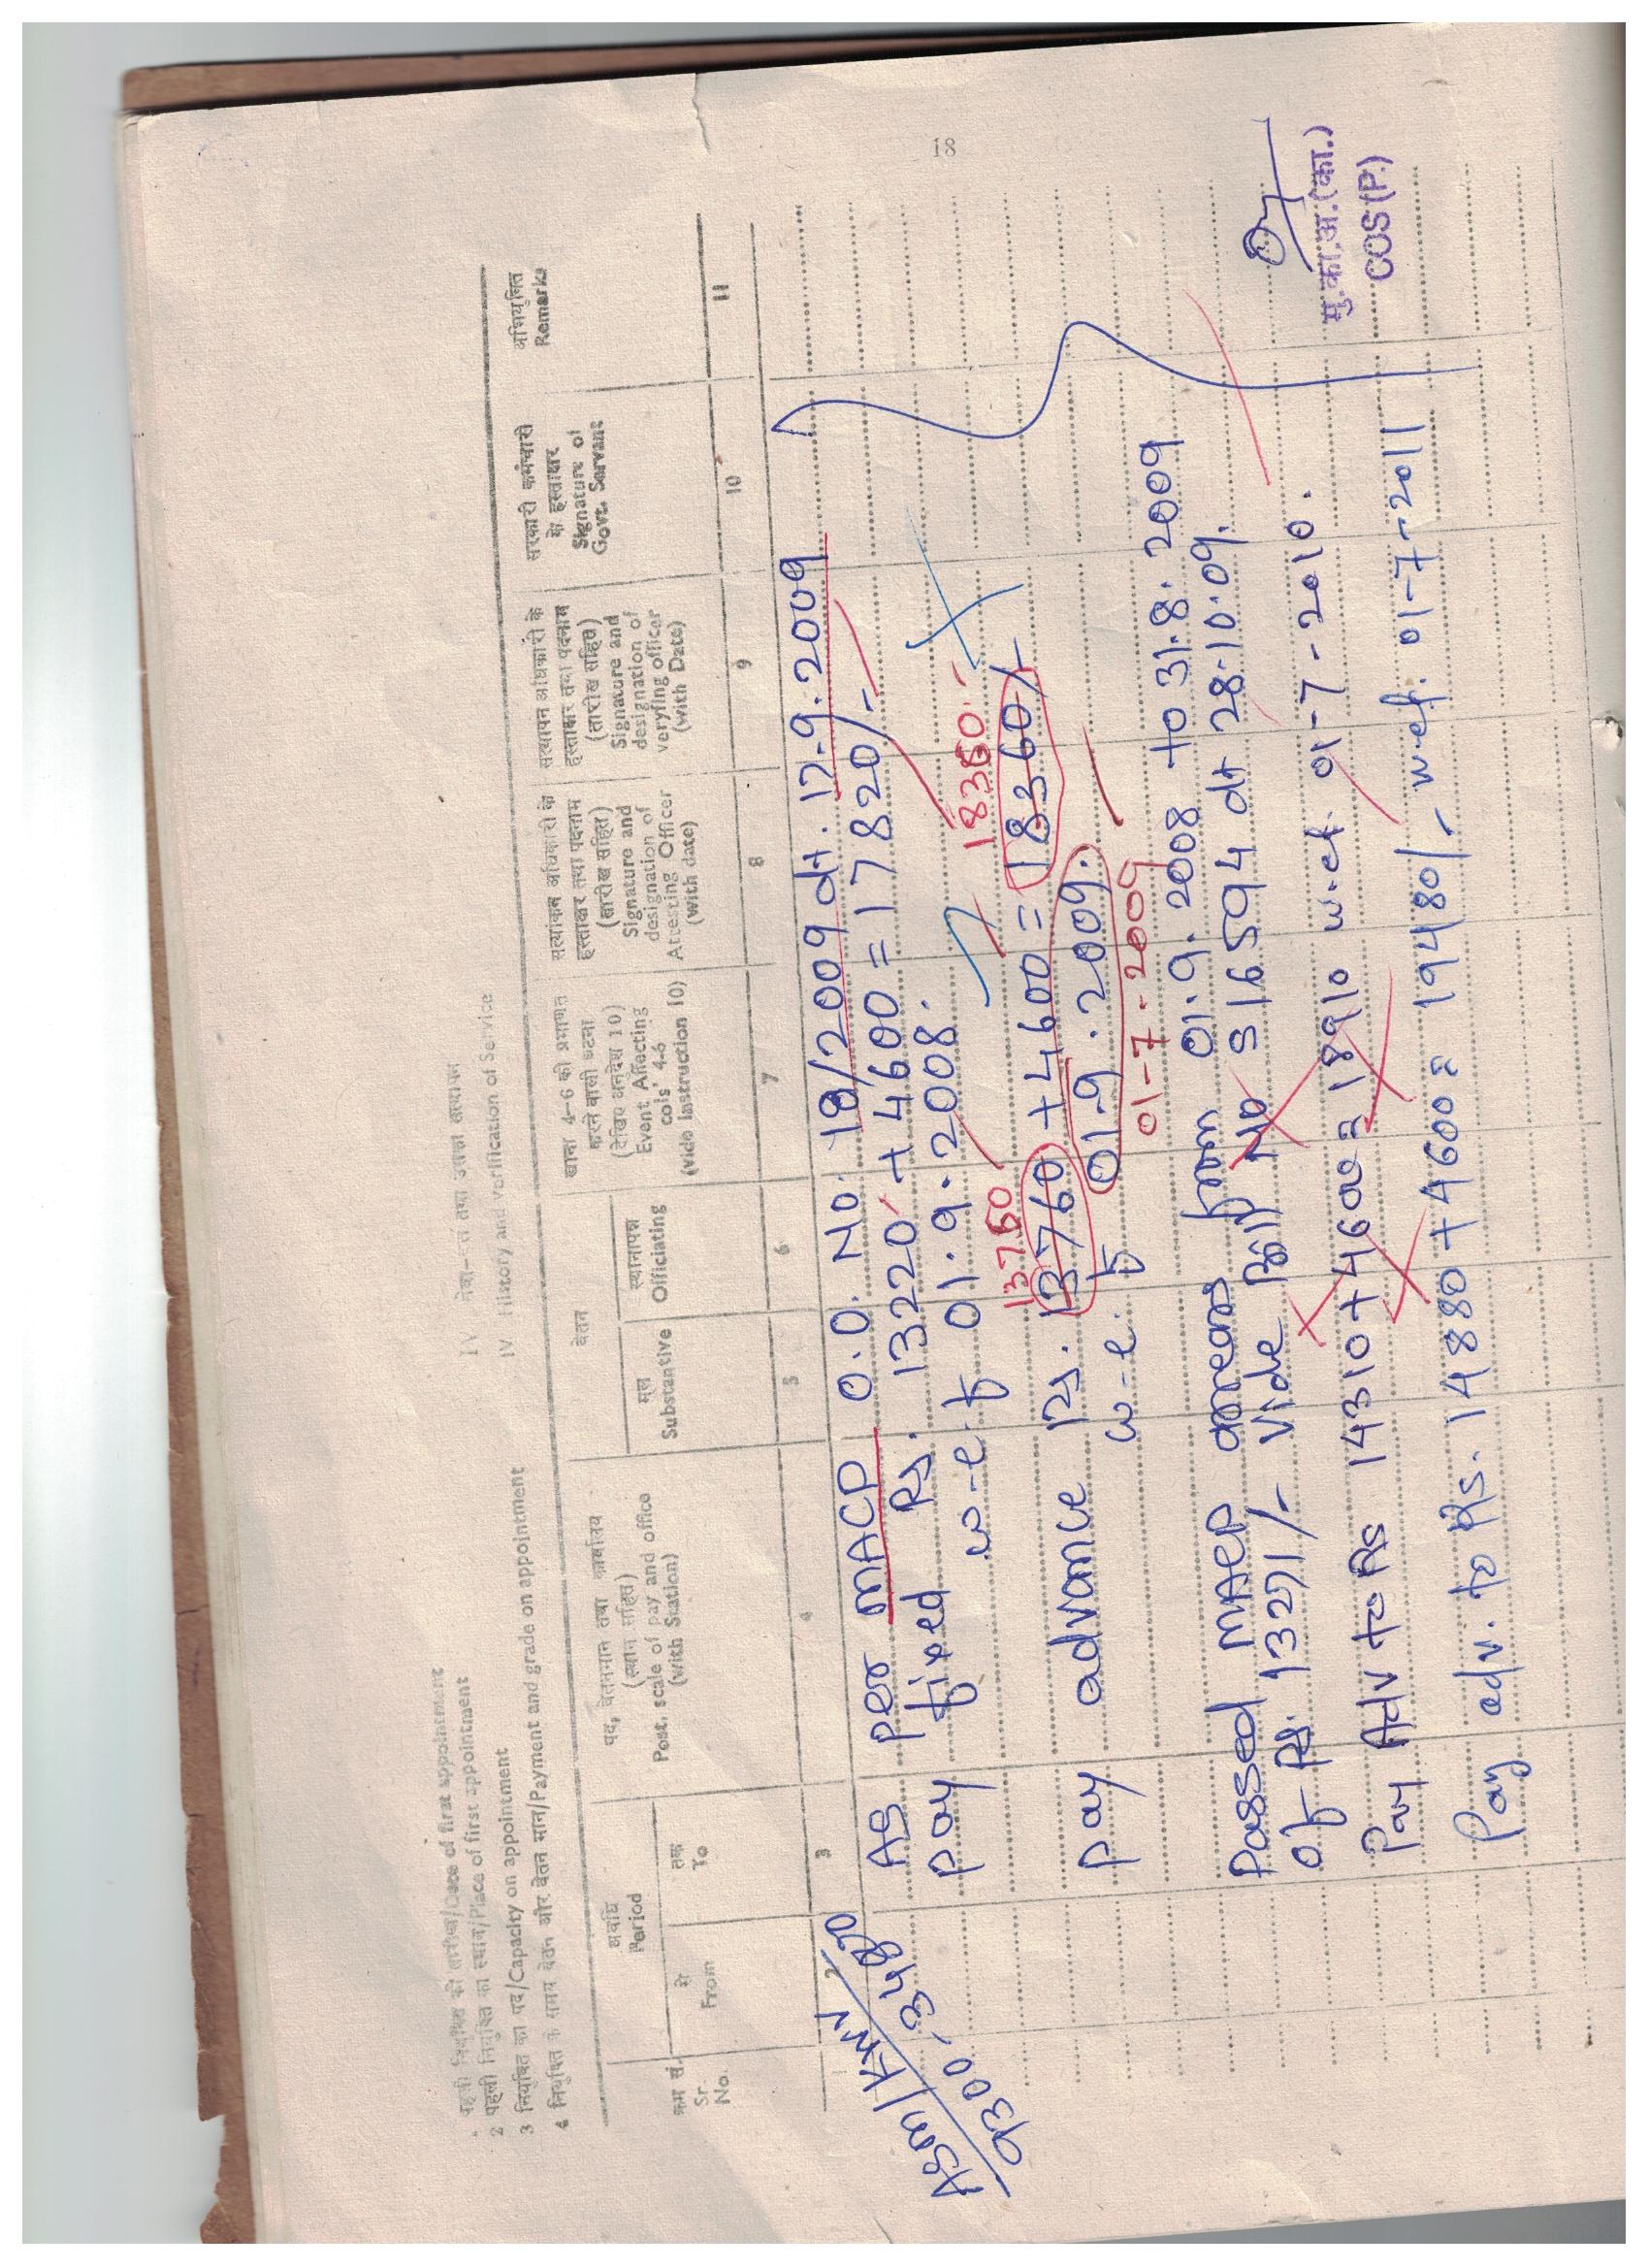 18
IV सेवा-वृत्त तथा उसका सत्यापन
IV History and verification of Service
1 पहली नियुक्ति की तारीख/Date of first appointment
2 पहली नियुक्ति का स्थान/Place of first appointment
3 नियुक्ति का पद/Capacity on appointment
4 नियुक्ति के समय वेतन और वेतन मान/Payment and grade on appointment
क्रम सं.
Sr.
No.
अवधि
Period
से
From
तक
To
पद, वेतनमान तथा कार्यालय
(स्थान सहित)
Post, scale of pay and office
(with Station)
वेतन
मूल
Substantive
स्थानापन्न
Officiating
खाना 4-6 को प्रभावित
करने वाली घटना
(देखिए अनुदेश 10)
Event Affecting
cols' 4-6
(vide instruction 10)
सत्यांकन अधिकारी के
हस्ताक्षर तथा पदनाम
(तारीख सहित)
Signature and
designation of
Attesting Officer
(with date)
सत्यापन अधिकारी के
हस्ताक्षर तथा पदनाम
(तारीख सहित)
Signature and
designation of
veryfing officer
(with Date)
सरकारी कर्मचारी
के हस्ताक्षर
Signature of
Govt. Servant
अभियुक्ति
Remarks
1 2 3 4 5 6 7 8 9 10 11
ASM/KWV
9300/34800
As per MACP O.O. No. 19/2009 dt. 17.9.2009
pay fixed Rs. 13220 + 4600 = 17820/-
w-e.f 01.9.2008.
13760 18360-
pay advance Rs. 13760 + 4600 = 18360/-
w-e.f 01.9.2009.
01-7-2009
Passed MACP arrears from 01.9.2008 to 31.8.2009
of Rs. 13271/- Vide Bill No S16594 dt 28.10.09.
Pay Adv to Rs 14310 + 4600 = 18910 w.ef. 01-7-2010.
Pay adv. to Rs. 14880 + 4600 = 19480/- w.ef. 01-7-2011
मु.का.अ.(का.)
COS (P.)